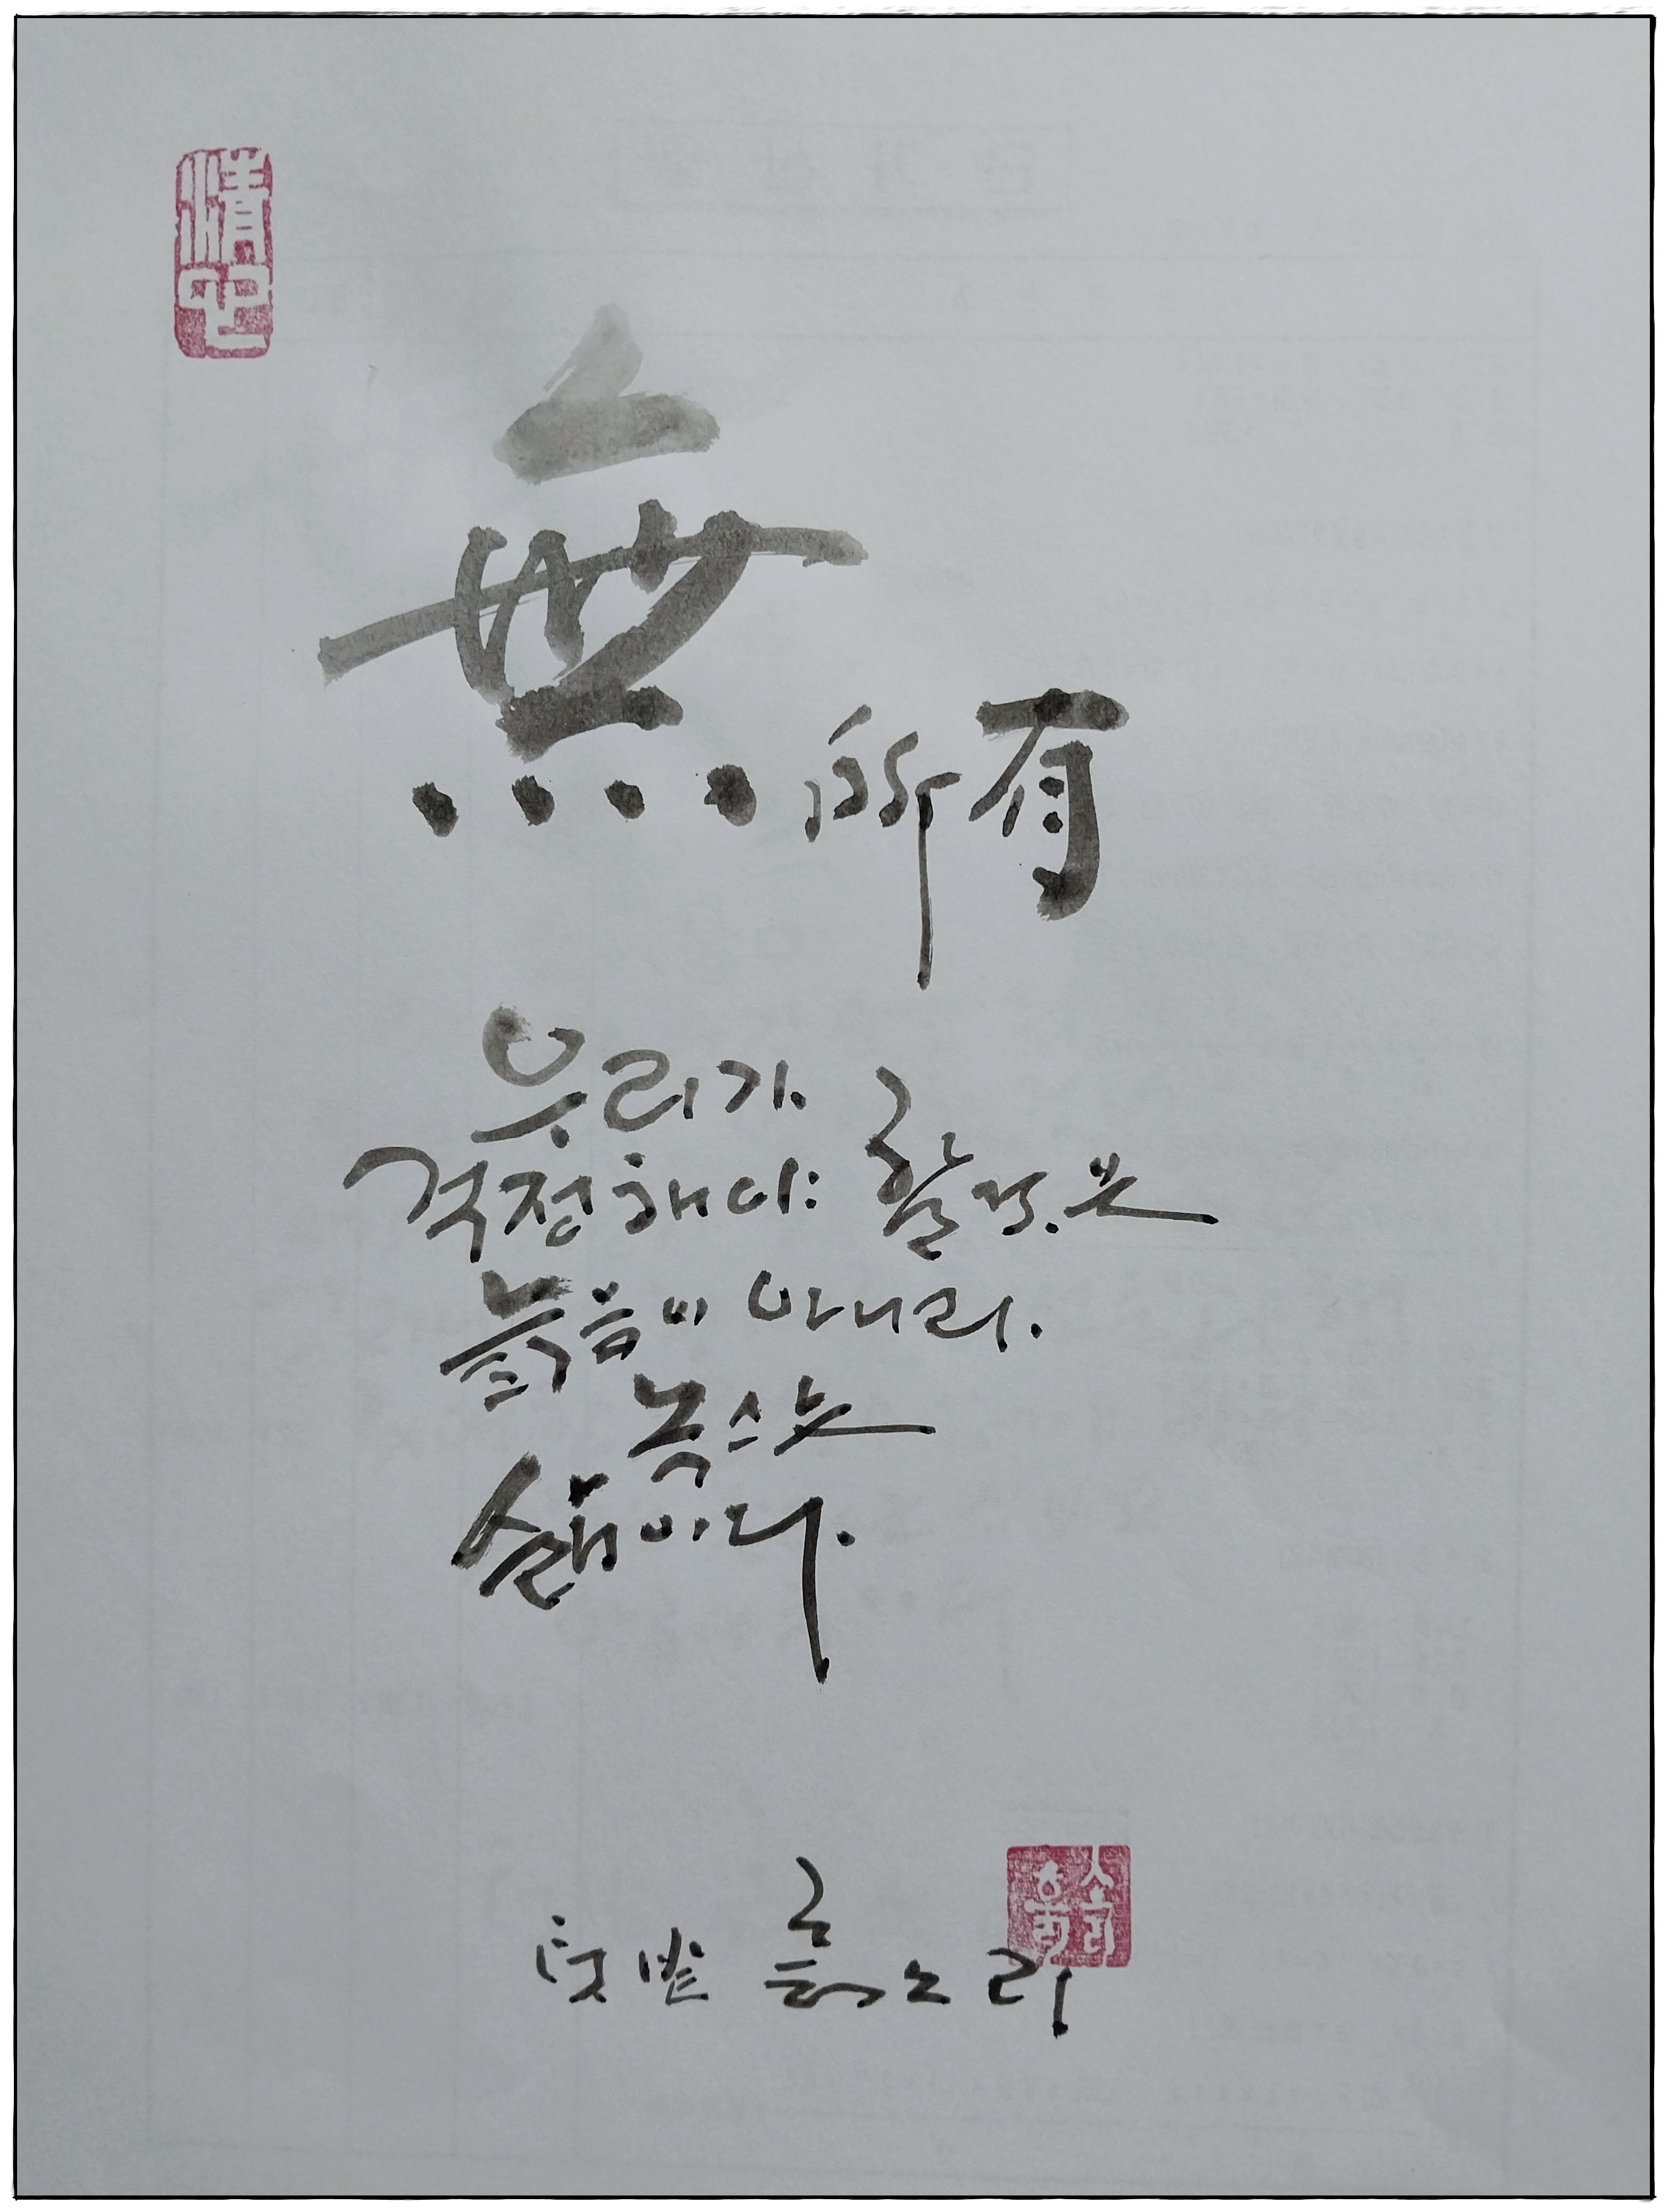 淸心
無所有
우리가
걱정해야 할것은
늙음이 아니라
녹스는
삶이다.
텃밭 흙소리